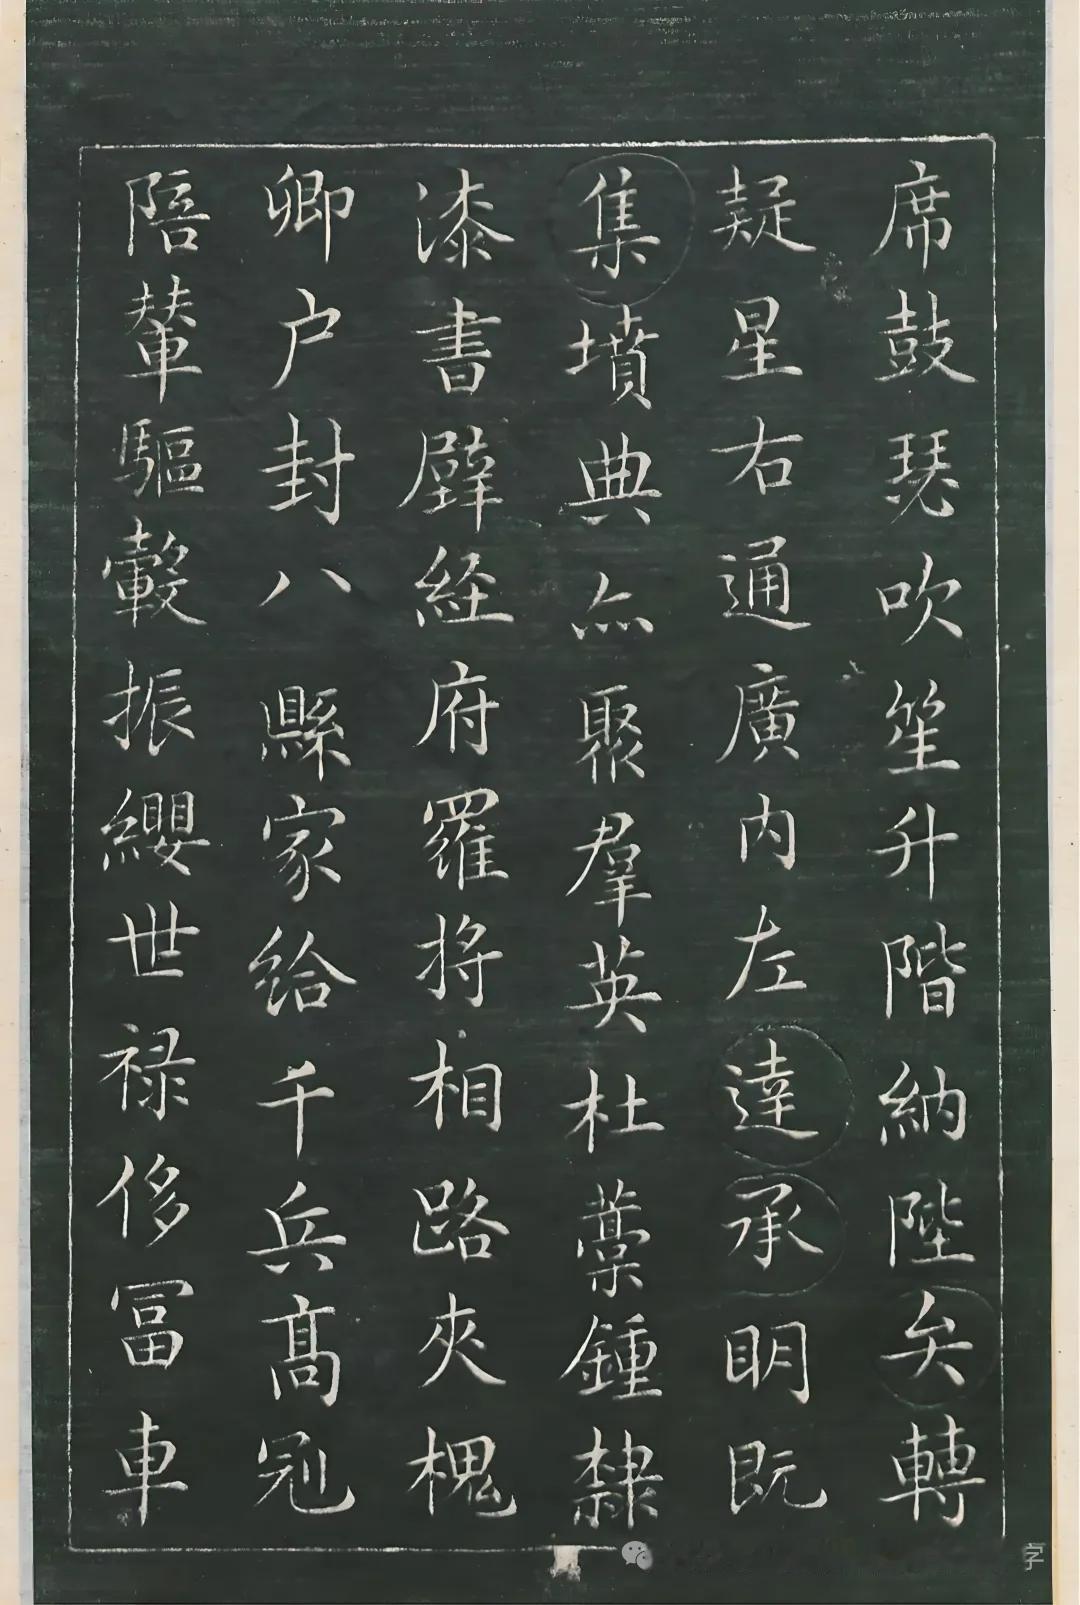 席鼓瑟吹笙升階納陛矣轉
疑星右通廣内左達承明既
集墳典亦聚羣英杜藁鍾隸
漆書壁経府羅将相路夾槐
卿户封八縣家給千兵髙冠
陪輦驅轂振纓世禄侈冨車
字